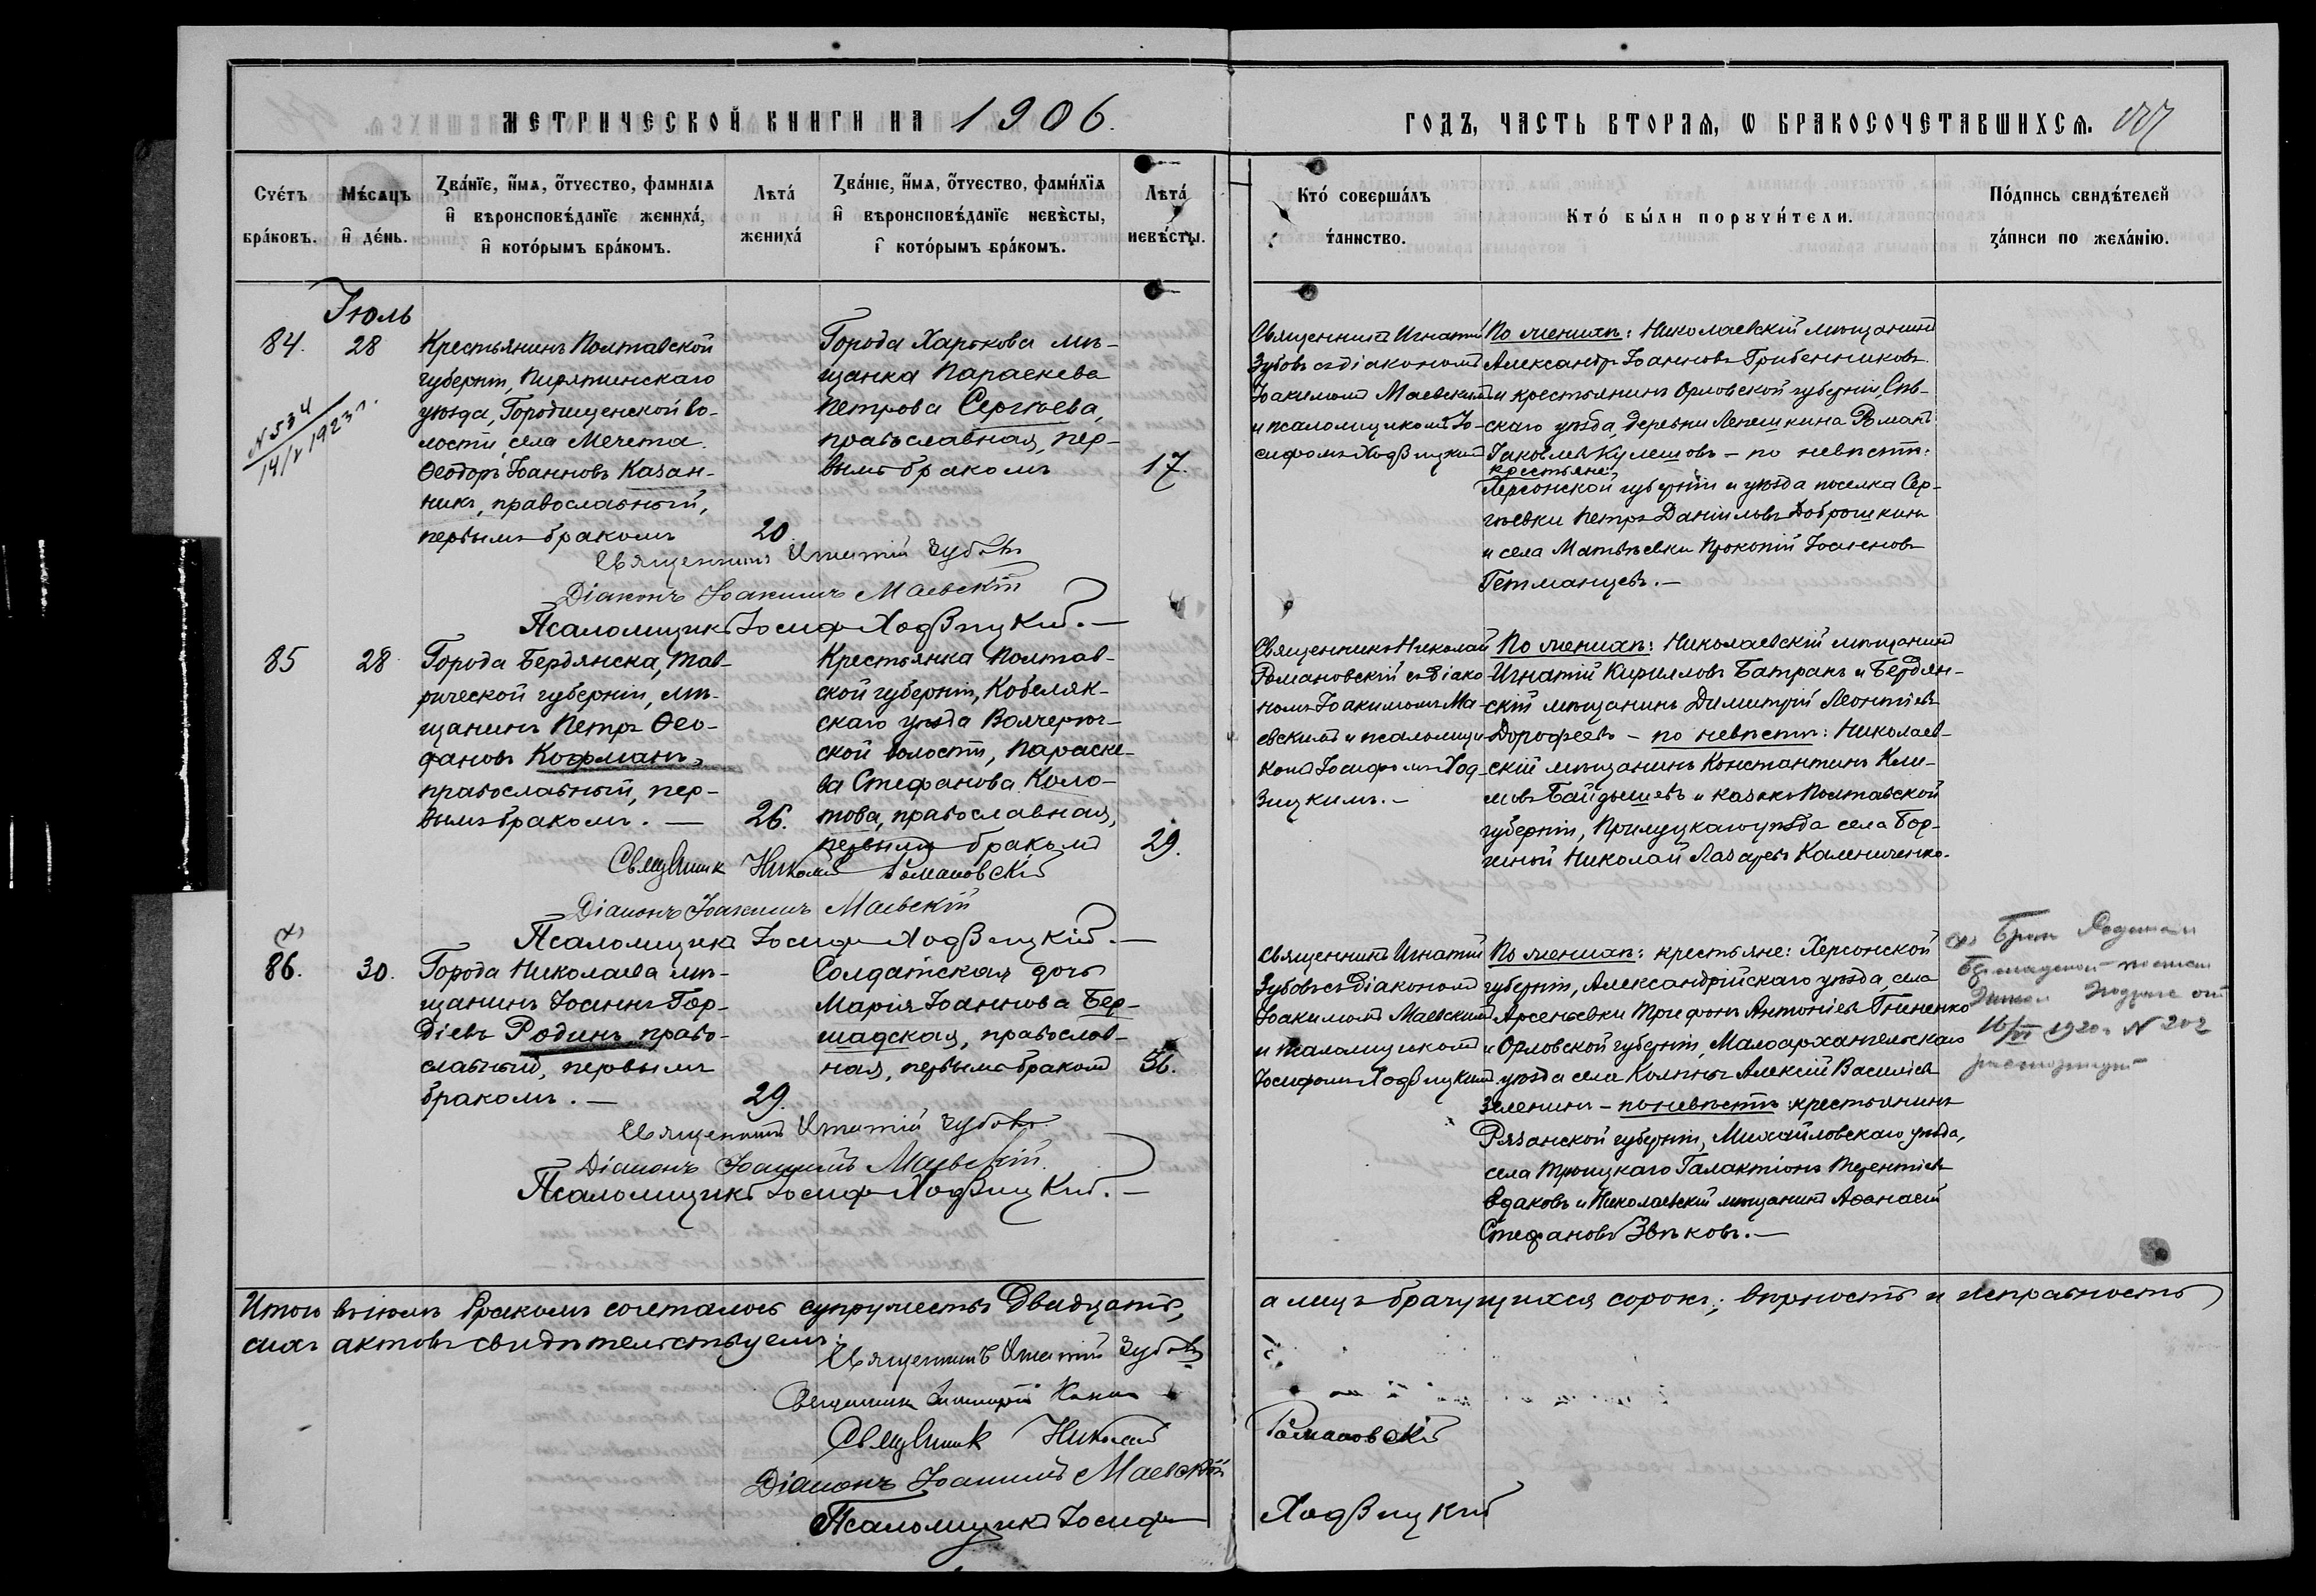 МЕТРИЧЕСКОЙ КНИГИ НА 1906.
ГОДЪ, ЧАСТЬ ВТОРАЯ, Ѡ БРАКОСОЧЕТАВШИХСЯ.
Счетъ браковъ.
Мѣсяцъ и день.
Званіе, имя, отчество, фамилія и вѣроисповѣданіе жениха, и которымъ бракомъ.
Лѣта жениха
Званіе, имя, отчество, фамилія и вѣроисповѣданіе невѣсты, и которымъ бракомъ.
Лѣта невѣсты.
Кто совершалъ таинство.
Кто были поручители.
Подпись свидѣтелей записи по желанію.
Іюль
84.
28
N 534
14/V 1923 г.
Крестьянинъ Полтавской
губерніи, Пирятинскаго
уѣзда, Городищенской во-
лости, села Мечета
Ѳеодоръ Іоанновъ Казан-
никъ, православный,
первымъ бракомъ
20
Города Харькова мѣ-
щанка Параскева
Петрова Сергѣева,
православная, пер-
вымъ бракомъ
17.
Священникъ Игнатій
Зубовъ съ діакономъ
Іоакимомъ Маевскимъ
и псаломщикомъ Іо-
сифомъ Ходзицкимъ
По женихѣ: Николаевскій мѣщанинъ
Александръ Іоанновъ Грибенниковъ
и крестьянинъ Орловской губерніи, Сѣв-
скаго уѣзда, деревни Лепешкина Романъ
Іаковлевъ Кулешовъ – по невѣстѣ:
крестьяне:
Херсонской губерніи и уѣзда поселка Сер-
гѣевки Петръ Даніиловъ Доброшкинъ
и села Матвѣевки Прокопій Іоанновъ
Гетманцевъ. –
Священникъ Игнатій Зубовъ
Діаконъ Іоакимъ Маевскій
Псаломщикъ Іосифъ Ходзицкій. –
85
28
Города Бердянска, Тав-
рической губерніи, мѣ-
щанинъ Петръ Ѳео-
фановъ Кофманъ,
православный, пер-
вымъ бракомъ. –
26.
Крестьянка Полтав-
ской губерніи, Кобеляк-
скаго уѣзда
ской волости, Параске-
ва Стефанова Коло-
това, православная,
первымъ бракомъ
29.
Священникъ Николай
Романовскій съ діако-
номъ Іоакимомъ Ма-
евскимъ и псаломщи-
комъ Іосифомъ Ход-
зицкимъ. –
По женихѣ: Николаевскій мѣщанинъ
Игнатій Кирилловъ Батракъ и Бердян-
скій мѣщанинъ Димитрій Леонтіевъ
Дорофеевъ – по невѣстѣ: Николаев-
скій мѣщанинъ Константинъ Кли-
мовъ Байдышевъ и казакъ Полтавской
губерніи, Прилуцкаго уѣзда села
Николай Лазаревъ Калениченко.
Священникъ Николай Романовскій
Діаконъ Іоакимъ Маевскій
Псаломщикъ Іосифъ Ходзицкій. –
86.
30.
Города Николаева мѣ-
щанинъ Іоаннъ Гор-
діевъ Родинъ, право-
славный, первымъ
бракомъ. –
29.
Солдатская дочь
Марія Іоаннова Бер-
шадская, православ-
ная, первымъ бракомъ
Священникъ Игнатій
Зубовъ съ діакономъ
Іоакимомъ Маевскимъ
и псаломщикомъ
Іосифомъ Ходзицкимъ
По женихѣ: крестьяне: Херсонской
губерніи, Александрійскаго уѣзда, села
Арсеньевки Трифонъ Антоніевъ Гниненко
и Орловской губерніи, Малоархангельскаго
уѣзда села Колпны Алексій Василіевъ
Зеленинъ – по невѣстѣ: крестьянинъ
Рязанской губерніи, Михайловскаго уѣзда,
села Троицкаго Галактіонъ Терентіевъ
Едаковъ и Николаевскій мѣщанинъ Аѳанасій
Стефановъ Зыковъ. –
Бракъ
16/VI 1920 г. N 202
Священникъ Игнатій Зубовъ
Діаконъ Іоакимъ Маевскій
Псаломщикъ Іосифъ Ходзицкій. –
Итого въ іюлѣ бракомъ сочеталось супружествъ двадцать,
а лицъ брачущихся сорокъ; вѣрность и исправность
сихъ актовъ свидѣтельствуемъ:
Священникъ Игнатій Зубовъ
Священникъ
Священникъ Николай Романовскій
Діаконъ Іоакимъ Маевскій
Псаломщикъ Іосифъ Ходзицкій